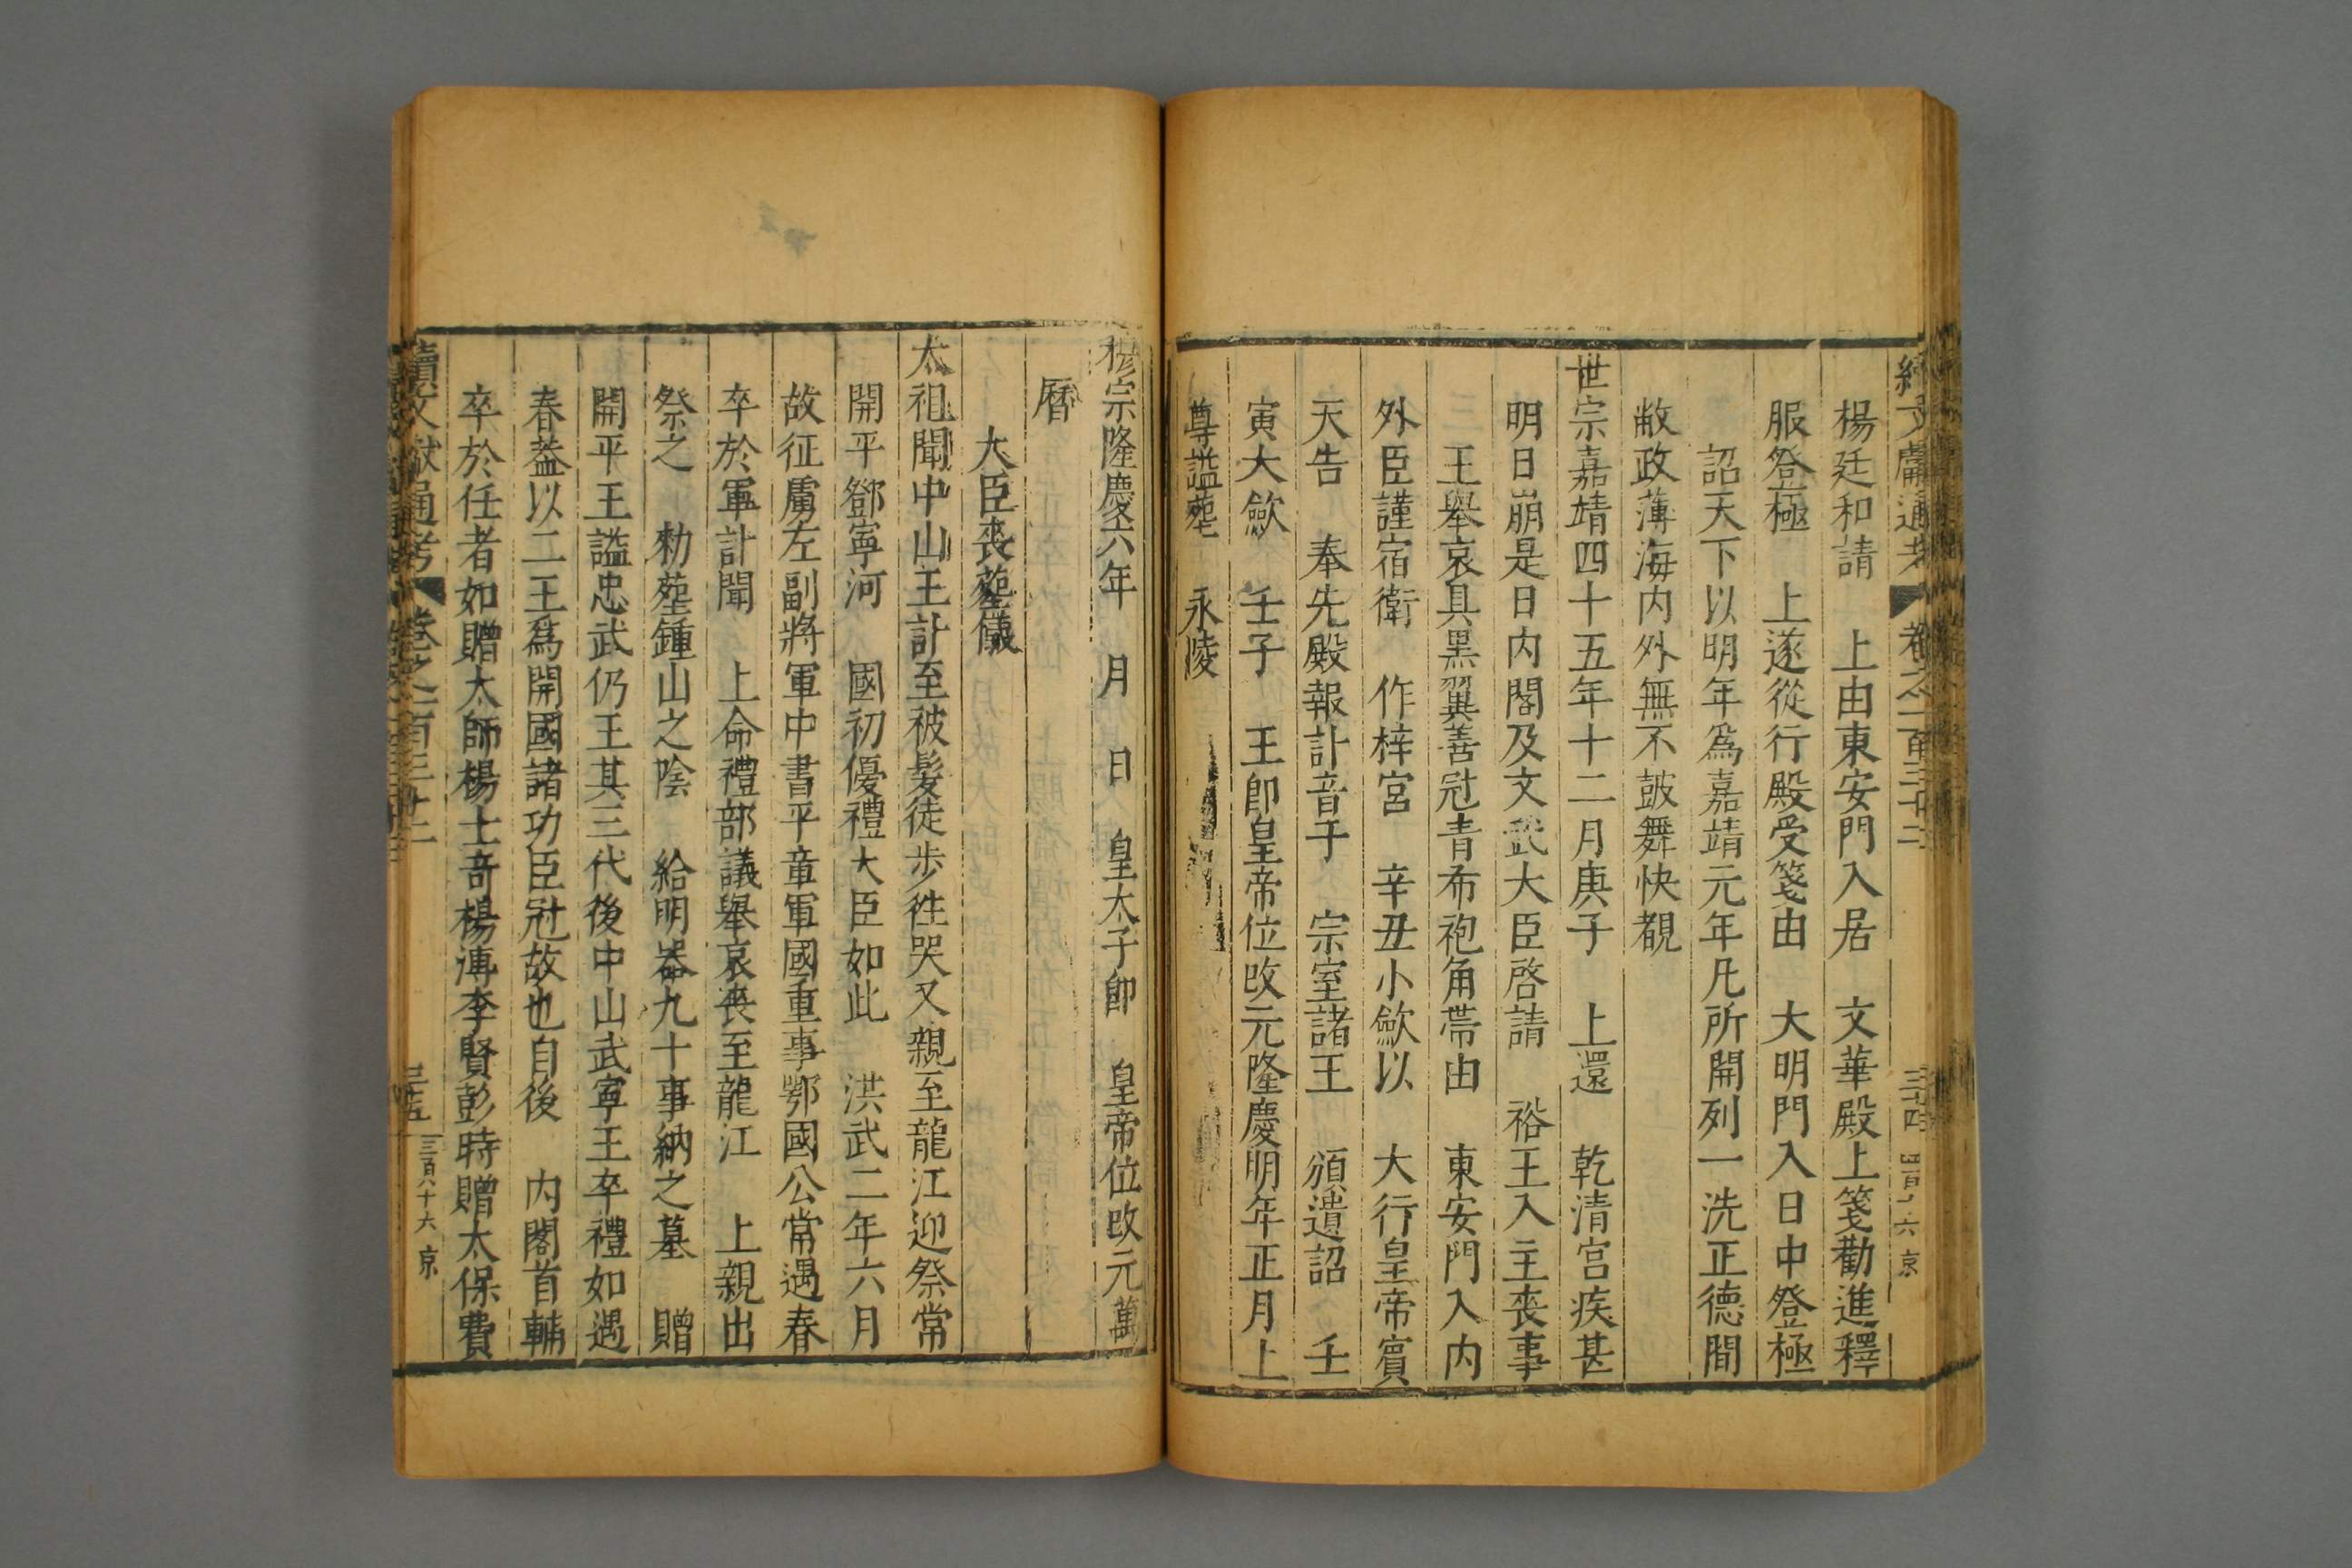 續文獻通考 卷之一百三十二 三十四
楊廷和請 上由東安門入居 文華殿上箋勸進釋
服登極 上遂從行殿受箋由 大明門入日中登極
詔天下以明年爲嘉靖元年凡所開列一洗正德間
敝政薄海内外無不皷舞快覩
世宗嘉靖四十五年十二月庚子 上還 乾清宫疾甚
明日崩是日内閣及文武大臣啓請 裕王入主丧事
王舉哀具黑翼善冠青布袍角帶由 東安門入内
外臣謹宿衛 作梓宮 辛丑小歛以 大行皇帝賔
天告 奉先殿報訃音于 宗室諸王 頒遺詔 壬
寅大歛 壬子 王卽皇帝位改元隆慶明年正月上
尊謚塟 永陵
穆宗隆慶六年 月 日 皇太子卽 皇帝位改元萬
曆
大臣丧塟儀
太祖聞中山王訃至被髮徒步徃哭又親至龍江迎祭常
開平鄧寧河 國初優禮大臣如此 洪武二年六月
故征虜左副將軍中書平章軍國重事鄂國公常遇春
卒於軍訃聞 上命禮部議舉哀丧至龍江 上親出
祭之 勑塟鍾山之陰 給明器九十事納之墓 贈
開平王謚忠武仍王其三代後中山武寧王卒禮如遇
春葢以二王爲開國諸功臣冠故也自後 内閣首輔
卒於任者如贈太師楊士奇楊溥李賢彭時贈太保費
續文獻通考 卷之一百三十二 三十五 三百八十六 京